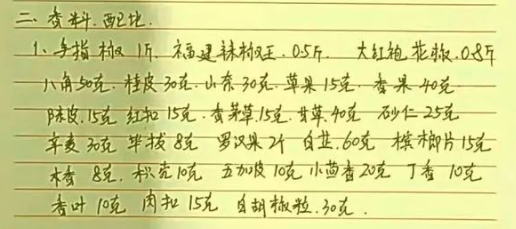 二、香料.配比.
1、手指椒 1斤. 福建辣椒王. 0.5斤. 大红袍花椒.0.8斤
八角50克. 桂皮30克. 山奈30克. 草果15克. 香果.40克
陈皮.15克 红扣15克. 香茅草.15克. 甘草.40克 砂仁25克
辛夷30克 毕拔 8克 罗汉果2个 白芷.60克 槟榔片15克
木香 8克. 积壳10克 五加皮10克 小茴香20克 丁香 10克
香叶 10克 肉扣 15克 白胡椒粒.30克.